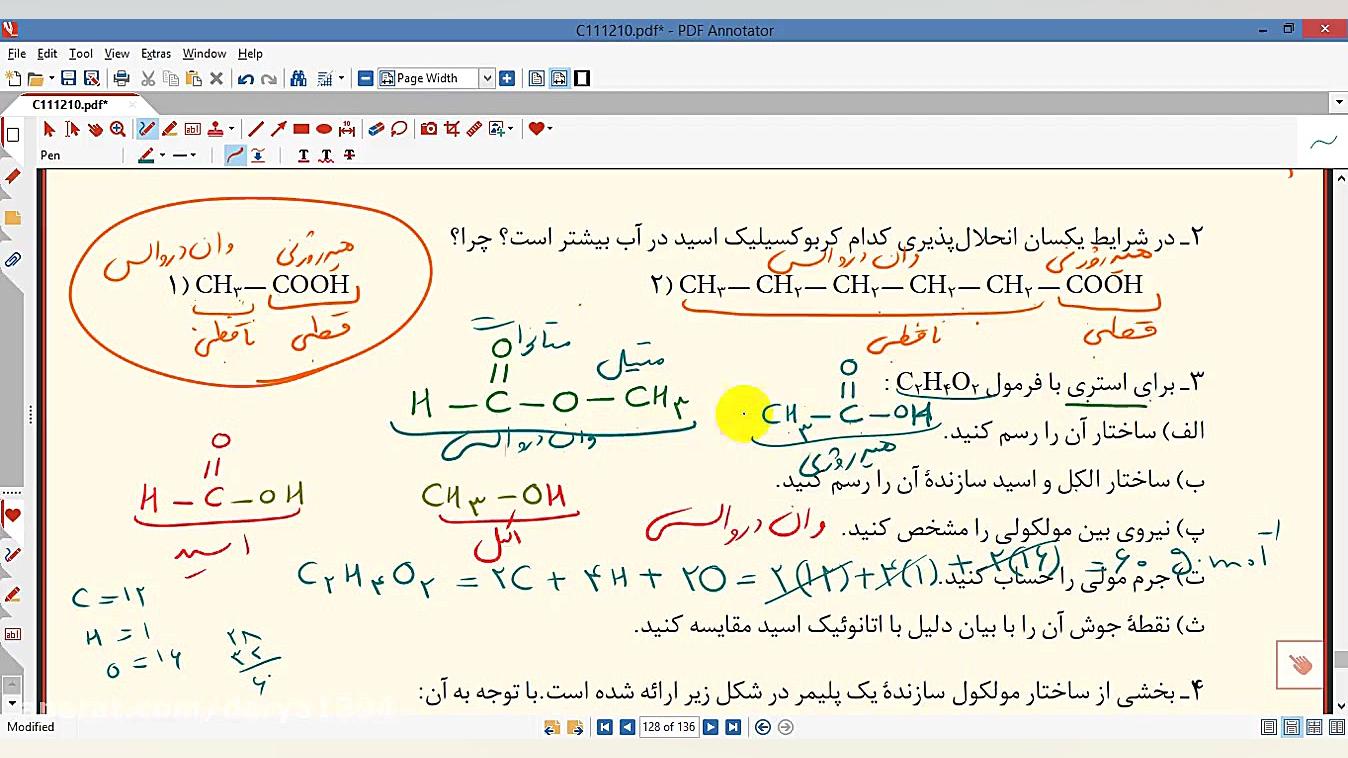 C111210.pdf* - PDF Annotator
File Edit Tool View Extras Window Help
Page Width
C111210.pdf*
Pen
۲ـ در شرایط یکسان انحلال‌پذیری کدام کربوکسیلیک اسید در آب بیشتر است؟ چرا؟
وان دروالسی هیدروژنی
وان دروالسی هیدروژنی
۱) CH۳— COOH
۲) CH۳— CH۲— CH۲— CH۲— CH۲— COOH
ناقطبی قطبی
ناقطبی قطبی
متیل متانوات
۳ـ برای استری با فرمول C۲H۴O۲ :
O
H — C — O — CH۳
O
CH۳ — C — OH
الف) ساختار آن را رسم کنید.
وان دروالسی
هیدروژنی
ب) ساختار الکل و اسید سازندهٔ آن را رسم کنید.
O
H — C — OH
CH۳ — OH
اسید
الکل
وان دروالسی
پ) نیروی بین مولکولی را مشخص کنید.
C۲H۴O۲ = ۲C + ۴H + ۲O = ۲(۱۲) + ۴(۱) + ۲(۱۶) = ۶۰ g.mol⁻¹
ت) جرم مولی را حساب کنید.
C = ۱۲
H = ۱
O = ۱۶
۲۸
۳۲
۶۰
ث) نقطهٔ جوش آن را با بیان دلیل با اتانوئیک اسید مقایسه کنید.
۴ـ بخشی از ساختار مولکول سازندهٔ یک پلیمر در شکل زیر ارائه شده است.با توجه به آن:
Modified
128 of 136